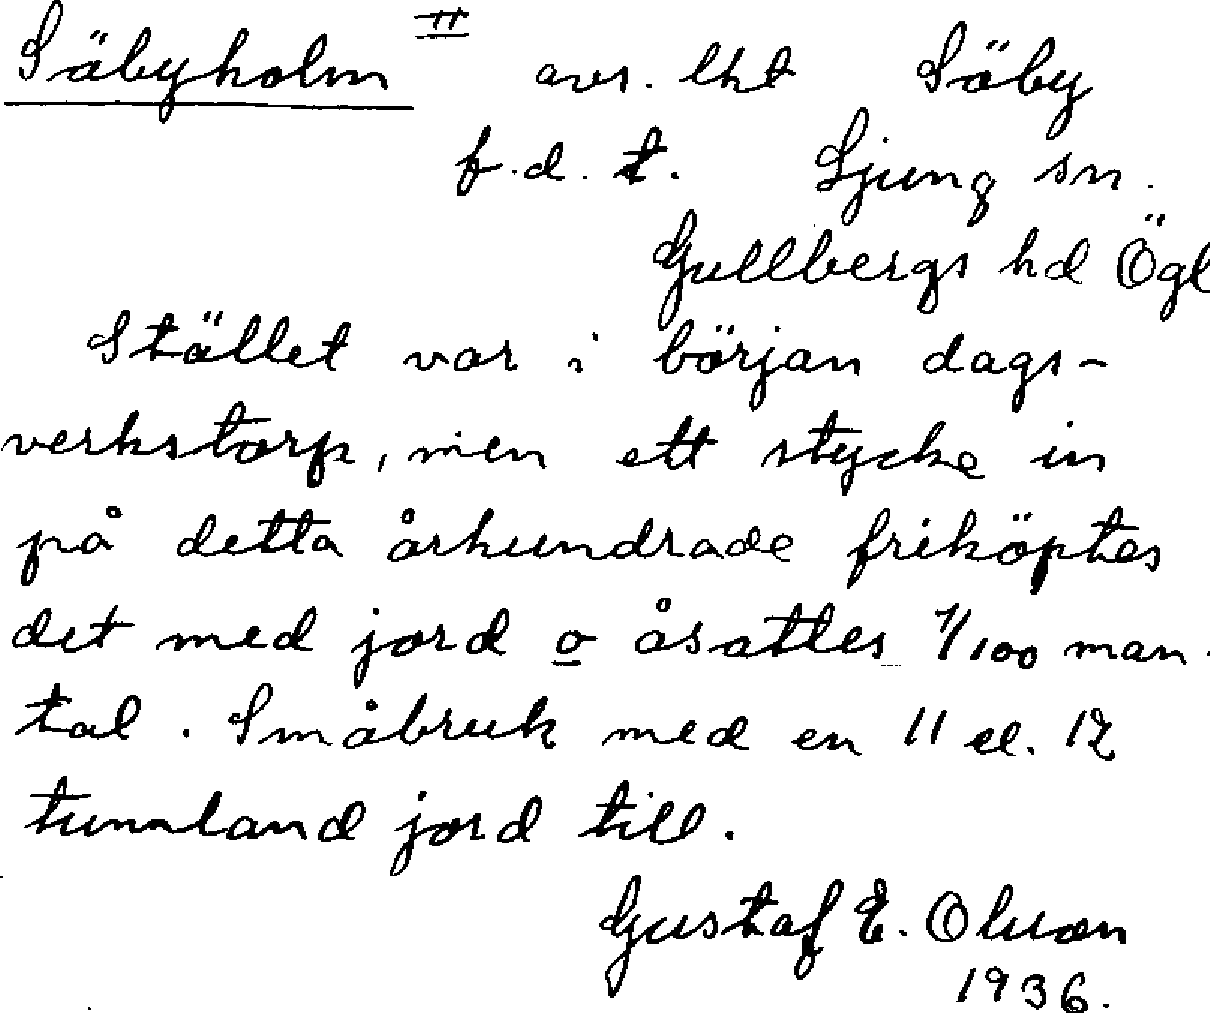 Säbyholm II avs. lht Säby
f.d. t. Ljung sn.
Gullbergs hd Ögl
Stället var i början dags-
verkstorp, men ett stycke in
på detta århundrade friköptes
det med jord o åsattes 1/100 man-
tal. Småbruk med en 11 el. 12
tunnland jord till.
Gustaf E. Olsson
1936.